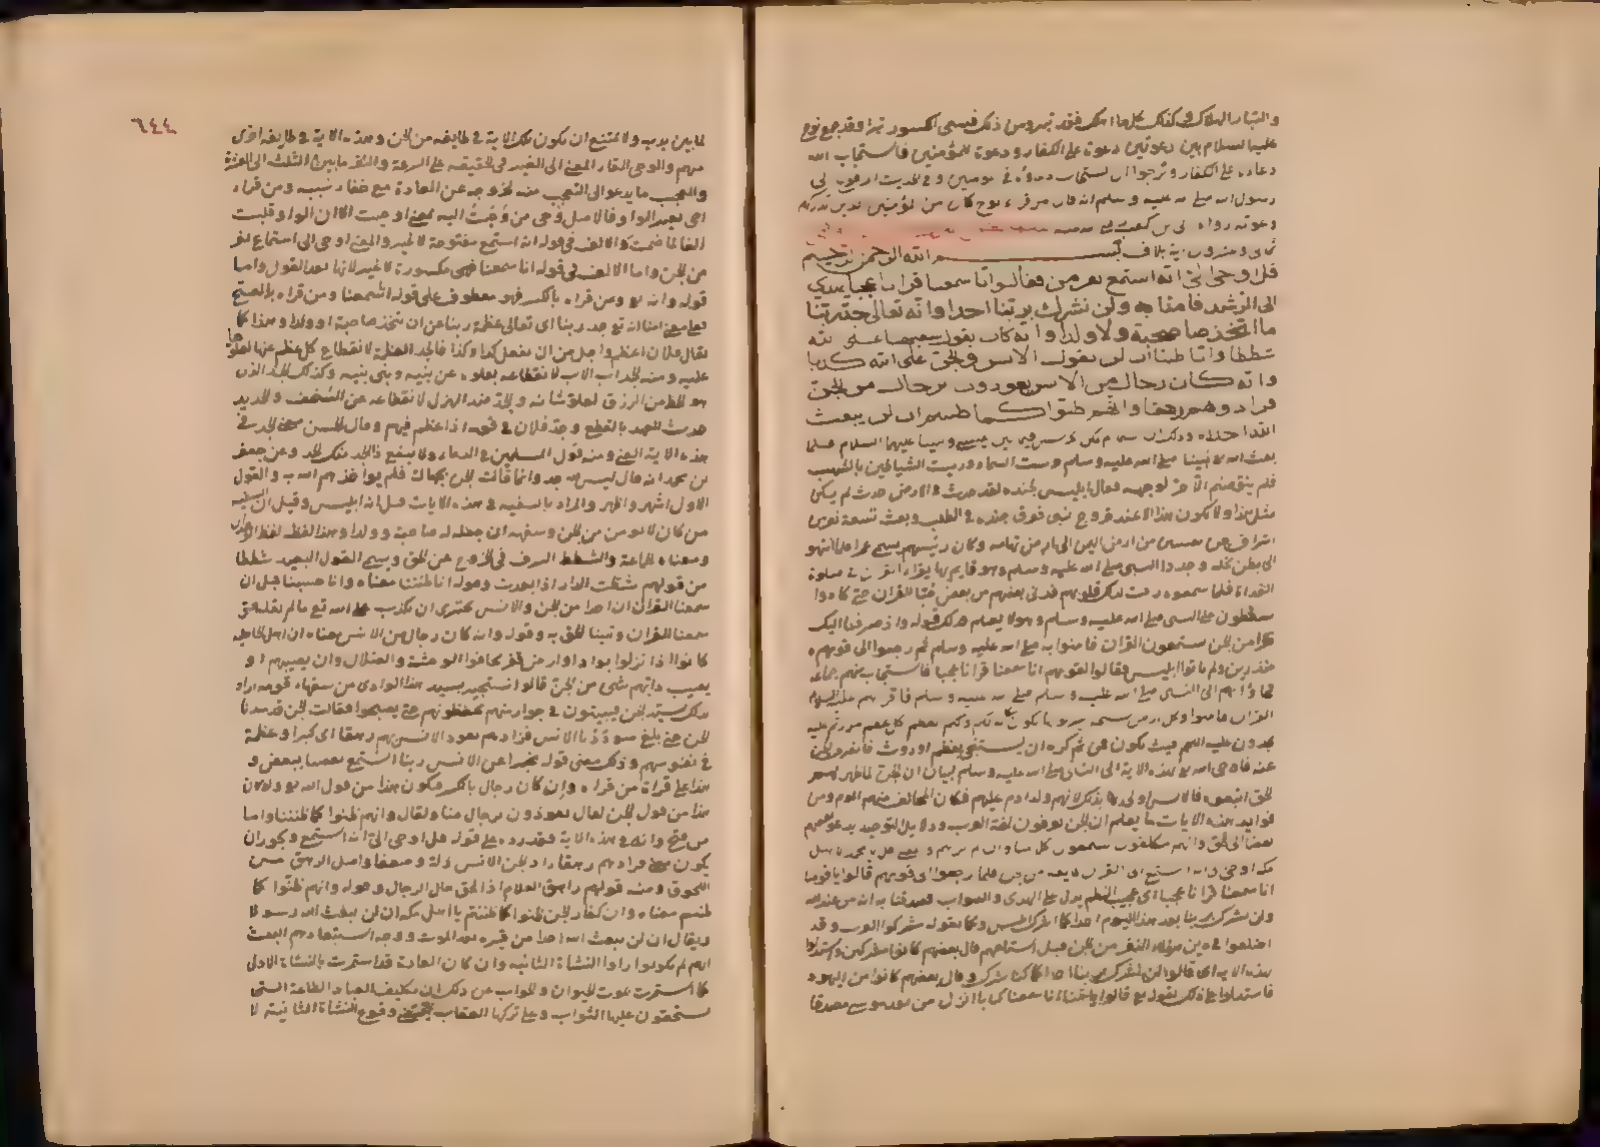 والتبار الهلاك وكذلك كل ما اهلك فقد تبر ومن ذلك فيسمى المكسور تبرا وقد جمع نوح
عليه السلام بين دعوتين دعوة على الكفار ودعوة للمؤمنين فاستجاب الله
دعاءه على الكفار ونرجوا ان يستجاب دعاؤه في المومنين وفي الحديث
رسول الله صلى الله عليه وسلم انه قال من قرا سورة نوح كان من المؤمنين الذين تدركهم
دعوته رواه ابي بن كعب
ثماني وعشرون اية بلا خلاف بسم الله الرحمن الرحيم
قل اوحى الي انه استمع نفر من فقالوا انا سمعنا قرانا عجبا يهدي
الى الرشد فامنا به ولن نشرك بربنا احدا وانه تعالى جد ربنا
ما اتخذ صاحبة ولا ولدا وانه كان يقول سفيهنا على الله
شططا وانا ظننا ان لن يقول الانس والجن على الله كذبا
وانه كان رجال من الانس يعوذون برجال من الجن
فزادوهم رهقا وانهم ظنوا كما ظننتم ان لن يبعث
الله احدا وذلك ان السماء لم تكن تحرس فيما بين عيسى ونبينا عليهما السلام فلما
بعث الله نبينا صلى الله عليه وسلم حرست السماء ورميت الشياطين بالشهب
فلم يبق صنم الا خر لوجهه فقال ابليس لجنده لقد حدث في الارض حدث لم يكن
مثل هذا ولا يكون هذا الا عند خروج نبي فوق جنده في الطلب وبعث تسعة نفر من
اشراف جن نصيبين من ارض اليمن الى ارض تهامة وكان رئيسهم يسمى عمرا فلما انتهوا
الى بطن نخلة وجدوا النبي صلى الله عليه وسلم وهو قايم بها يقرا القران في صلوة
الغداة فلما سمعوه رقت لذلك قلوبهم فدنى بعضهم من بعض حبا للقران حتى كادوا
يسقطون على النبي صلى الله عليه وسلم وهو لا يعلم فذلك قوله واذ صرفنا اليك
نفرا من الجن يستمعون القران فامنوا به صلى الله عليه وسلم ثم رجعوا الى قومهم
منذرين ولم ياتوا ابليس وقالوا لقومهم انا سمعنا قرانا عجبا فاستجاب منهم جماعة
فجاؤا بهم الى النبي صلى الله عليه وسلم صلى الله عليه وسلم فاقراهم عليه السلام
القران فامنوا
يجدون عليه اللحم حيث يكون فمن ثم كره ان يستنجى بعظم او روث
عنه فاوحى الله هذه الاية الى النبي صلى الله عليه وسلم ببيان ان الجن لما ظهر لهم
الحق اتبعوه فالانس اولى بذلك لانهم ولد ادم عليهم فكان المخالف منهم الوم ومن
فوايد هذه الايات ما يعلم ان الجن يعرفون لغة العرب ودلايل التوحيد يدعو بعضهم
بعضا الى الحق وانهم مكلفون
فلما رجعوا الى قومهم قالوا يا قومنا
انا سمعنا قرانا عجبا اي عجيب النظم يدل على الهدى والصواب فصدقنا به انه من عند الله
ولن نشرك بربنا بعد هذا اليوم احدا كما اشرك ابليس وكما يقوله مشركوا العرب وقد
اختلفوا في دين هؤلاء النفر من الجن قبل استماعهم قال بعضهم كانوا مشركين واستدلوا
بهذه الاية اي قالوا لن نشرك بربنا احدا كما كنا نشرك وقال بعضهم كانوا من اليهود
فاستدلوا على ذلك بقوله تع قالوا يا قومنا انا سمعنا كتابا انزل من بعد موسى مصدقا
٦٤٤
لما بين يديه ولا يمتنع ان يكون تلك الاية في طايفه من الجن وهذه الاية في طايفه اخرى
منهم والوحي القاء المعنى الى الغير في الحقيقه على السرعة والنفر ما بين الثلث الى العشرة
والعجب ما يدعو الى التعجب منه لخروجه عن العادة مع خفاء سببه ومن قراء
احى بغير الواو فالاصل وحى من وحيت اليه بمعنى اوحيت الا ان الواو قلبت
الفا لما ضمت والالف في قوله انه استمع مفتوحة لا غير والمعنى اوحى الى استماع نفر
من الجن واما الالف في قوله انا سمعنا فهى مكسورة لا غير لانها بعد القول واما
قوله وانه تع ومن قراه بالكسر فهو معطوف على قوله انا سمعنا ومن قراه بالفتح
فعلى معنى امنا انه تع جد ربنا اي تعالى عظمة ربنا عن ان يتخذ صاحبة او ولدا وهذا كما
يقال فلان اعظم واجل من ان يفعل كذا وكذا فالجد العظمة لانقطاع كل عظم عنها لعلوها
عليه ومنه الجد اب الاب لانقطاعه بعلوه عن بنيه وبني بنيه وكذلك الجد الذي
هو الحظ من الرزق لعلو شانه والجد ضد الهزل لانقطاعه عن السخف والجديد
حدث العهد بالقطع وجد فلان في قومه اذا عظم فيهم وقال الحسن معنى الجد في
هذه الاية الغنى ومنه قول المسلمين في الدعاء ولا ينفع ذا الجد منك الجد وعن جعفر
بن محمد انه قال ليس لله جد وانما قالت الجن بجهالة فلم يواخذهم الله به والقول
الاول اشهر واظهر والمراد بالسفيه في هذه الايات قيل انه ابليس وقيل ان السفيه
من كان لا يومن من الجن وسفهه ان جعل له صاحبة وولدا وهذا لفظ لفظ الواحد
ومعناه الجماعة والشطط السرف في الخروج عن الحق ويسمى القول البعيد شططا
من قولهم شطت الدار اذا بعدت وقوله انا ظننا معناه وانا حسبنا قبل ان
سمعنا القران ان احدا من الجن والانس يجترى ان يكذب على الله تع ما لم يقله حتى
سمعنا القران وتبينا الحق به وقوله وانه كان رجال من الانس معناه ان اهل الجاهلية
كانوا اذا نزلوا بواد او ارض قفر خافوا الوحشة والضلال وان يصيبهم او
يصيب دابتهم شئ من الجن قالوا نستجير بسيد هذا الوادي من سفهاء قومه ارادوا
بذلك سيد الجن فيبيتون في جوار منهم يحفظونهم حتى يصبحوا فقالت الجن قد سدنا
الجن حتى بلغ سوددنا الانس فزادهم تعوذ الانس بهم رهقا اي كبرا وعظمة
في نفوسهم وذلك معنى قوله مخبرا عن الانس ربنا استمتع بعضنا ببعض و
هذا على قراة من قراه وان كان رجال بالكسر فيكون هذا من قول الله تع ولو كان
هذا من قول الجن لقال يعوذون برجال منا ولقال وانهم ظنوا كما ظننا واما
من فتح وانه في هذه الاية فقد رده على قوله قل اوحى الي انه استمع ويجوز ان
يكون معنى فزادهم رهقا زاد الجن الانس ذلة وضعفا واصل الرهق من
اللحوق ومنه قولهم راهق الغلام اذا لحق حال الرجال وقوله وانهم ظنوا كما
ظننتم معناه وان كفار الجن ظنوا كما ظننتم يا اهل مكه ان لن يبعث الله رسولا
ويقال ان لن يبعث الله احدا من قبره بعد الموت ووجه استبعادهم البعث
انهم لم يكونوا راوا النشاة الثانية وان كان العادة قد استمرت بالنشاة الاولى
كما استمرت بموت الحيوان والجواب عن ذلك ان تكليف العباد الطاعة التي
يستحقون عليها الثواب وعلى تركها العقاب يقتضي وقوع النشاة الثانية لا